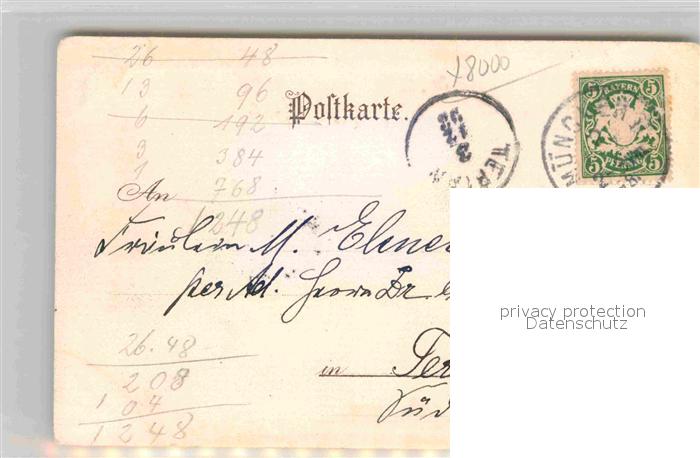 26 48
x8000
13 96
Postkarte.
6 192
3 384
1 768
An
1248
BAYERN
5 5
5 5
PFENNIG
MÜNC
Fräulein M.
per Ad. Herrn Dr
privacy protection
Datenschutz
26.48
208
104
1248
in Ter
Süd